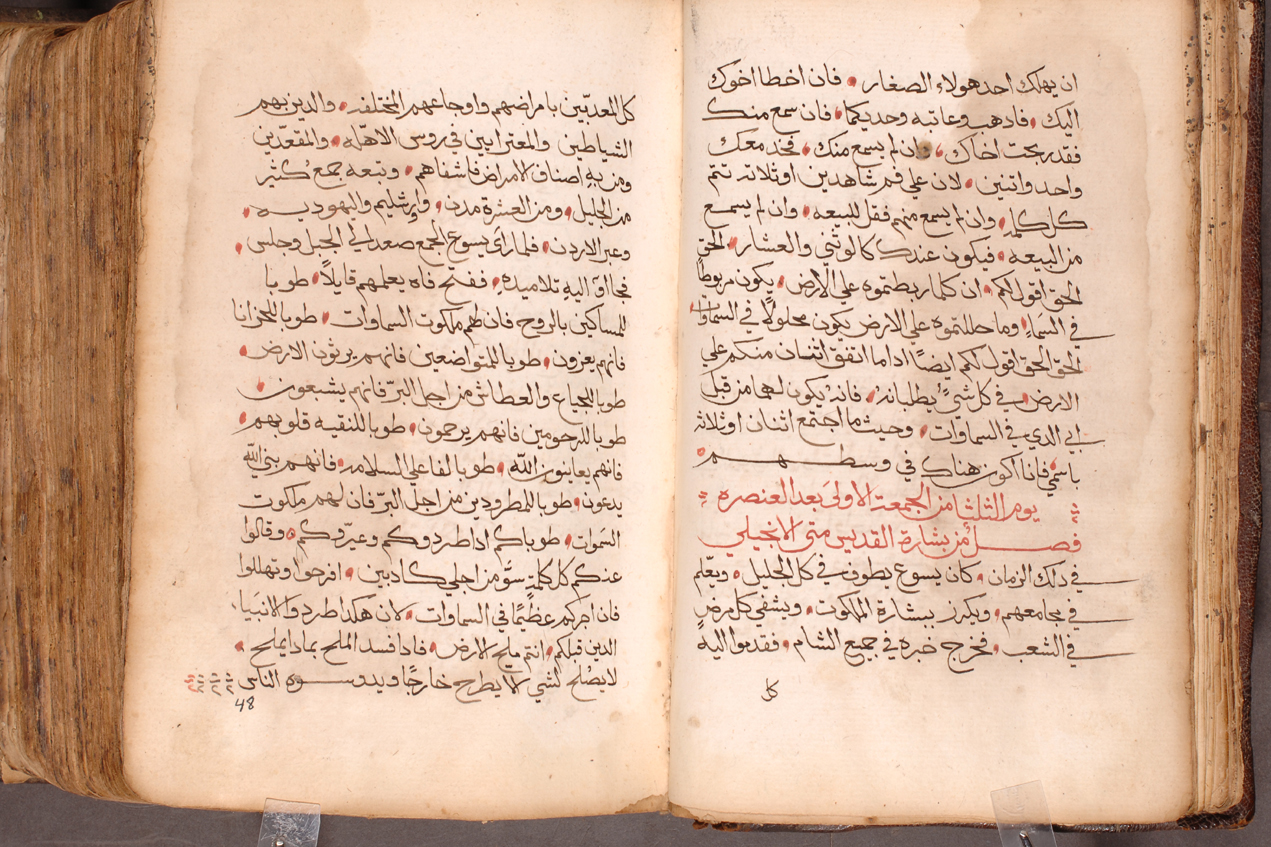 ان يهلك احد هولاء الصغار • فان اخطا اخوك
اليك • فادهب وعاتبه وحديكما • فان سمع منك
فقد ربحت اخاك • وان لم يسمع منك • فخد معك
واحد واتنين • لان علي فم شاهدين او ثلاثه تتم
كل كلمه • وان لم يسمع منهم فقل للبيعه • وان لم يسمع
من البيعه • فيكون عندك كالوثني والعشار • الحق
الحق اقول لكم • ان كلما ربطتموه علي الارض • يكون مربوطاً
في السماءِ • وما حللتموه علي الارض يكون محلولاً في السماوات •
الحق الحق اقول لكم ايضاً اداما اتفق اتنان منكم علي
الارض • في كل شيءٍ يطلبانه • فانه يكون لهما من قبل
ابي الدي في السماوات • وحيث ما اجتمع اثنان او ثلاثه
باسمي فانا اكون هناك في وسطهم •
يوم الثلثا من الجمعة الاولي بعد العنصره
فصل من بشارة القديس متي الانجيلي
في دلك الزمان • كان يسوع يطوف في كل الجليل • ويعلّم
في مجامعهم • ويكرز ببشارة الملكوت • ويشفي كل مرضٍ
في الشعب • فخرج خبره في جميع الشام • فقدموا اليه
كل
كل المعدبّين بامراضهم واوجاعهم المختلفه • والدين بهم
الشياطين والمعترابين في روس الاهله • والمقعدين
ومن به اصناف الامراض فاشفاهم • وتبعه جمع كثير
من الجليل • ومن العشرة مدن • واورشليم واليهوديه •
وعبر الاردن • فلما رأي يسوع الجمع صعد الي الجبل وجلس •
فجااوا اليهِ تلاميدهِ • ففتح فاه يعلمهم قايلاً • طوبا
للمساكين بالروح فان لهم ملكوت السماوات • طوبا للحزانا
فانهم يعزون • طوبا للمتواضعين فانهم يرثون الارض •
طوبا للجياع والعطاش من اجل البرّ فانهم يشبعون •
طوبا للرحومين فانهم يرحمون • طوبا للنقيه قلوبهم •
فانهم يعاينون الله • طوبا لفاعلي السلامه • فانهم بني الله
يدعون • طوبا للمطرودين من اجل البرّ فان لهم ملكوت
السموات • طوباكم ادا طردوكم وعيرّوكم • وقالوا
عنكم كل كلمة سّو من اجلي كادبين • افرحوا وتهللوا
فان اجركم عظيمًا في السماوات • لان هكدا طردوا الانبياء
الدين قبلكم • انتم ملح الارض • فادا فسد الملح بمادا يملح •
لا يصلح لشي الا يطرح خارجًا ويدوسوه الناس
48